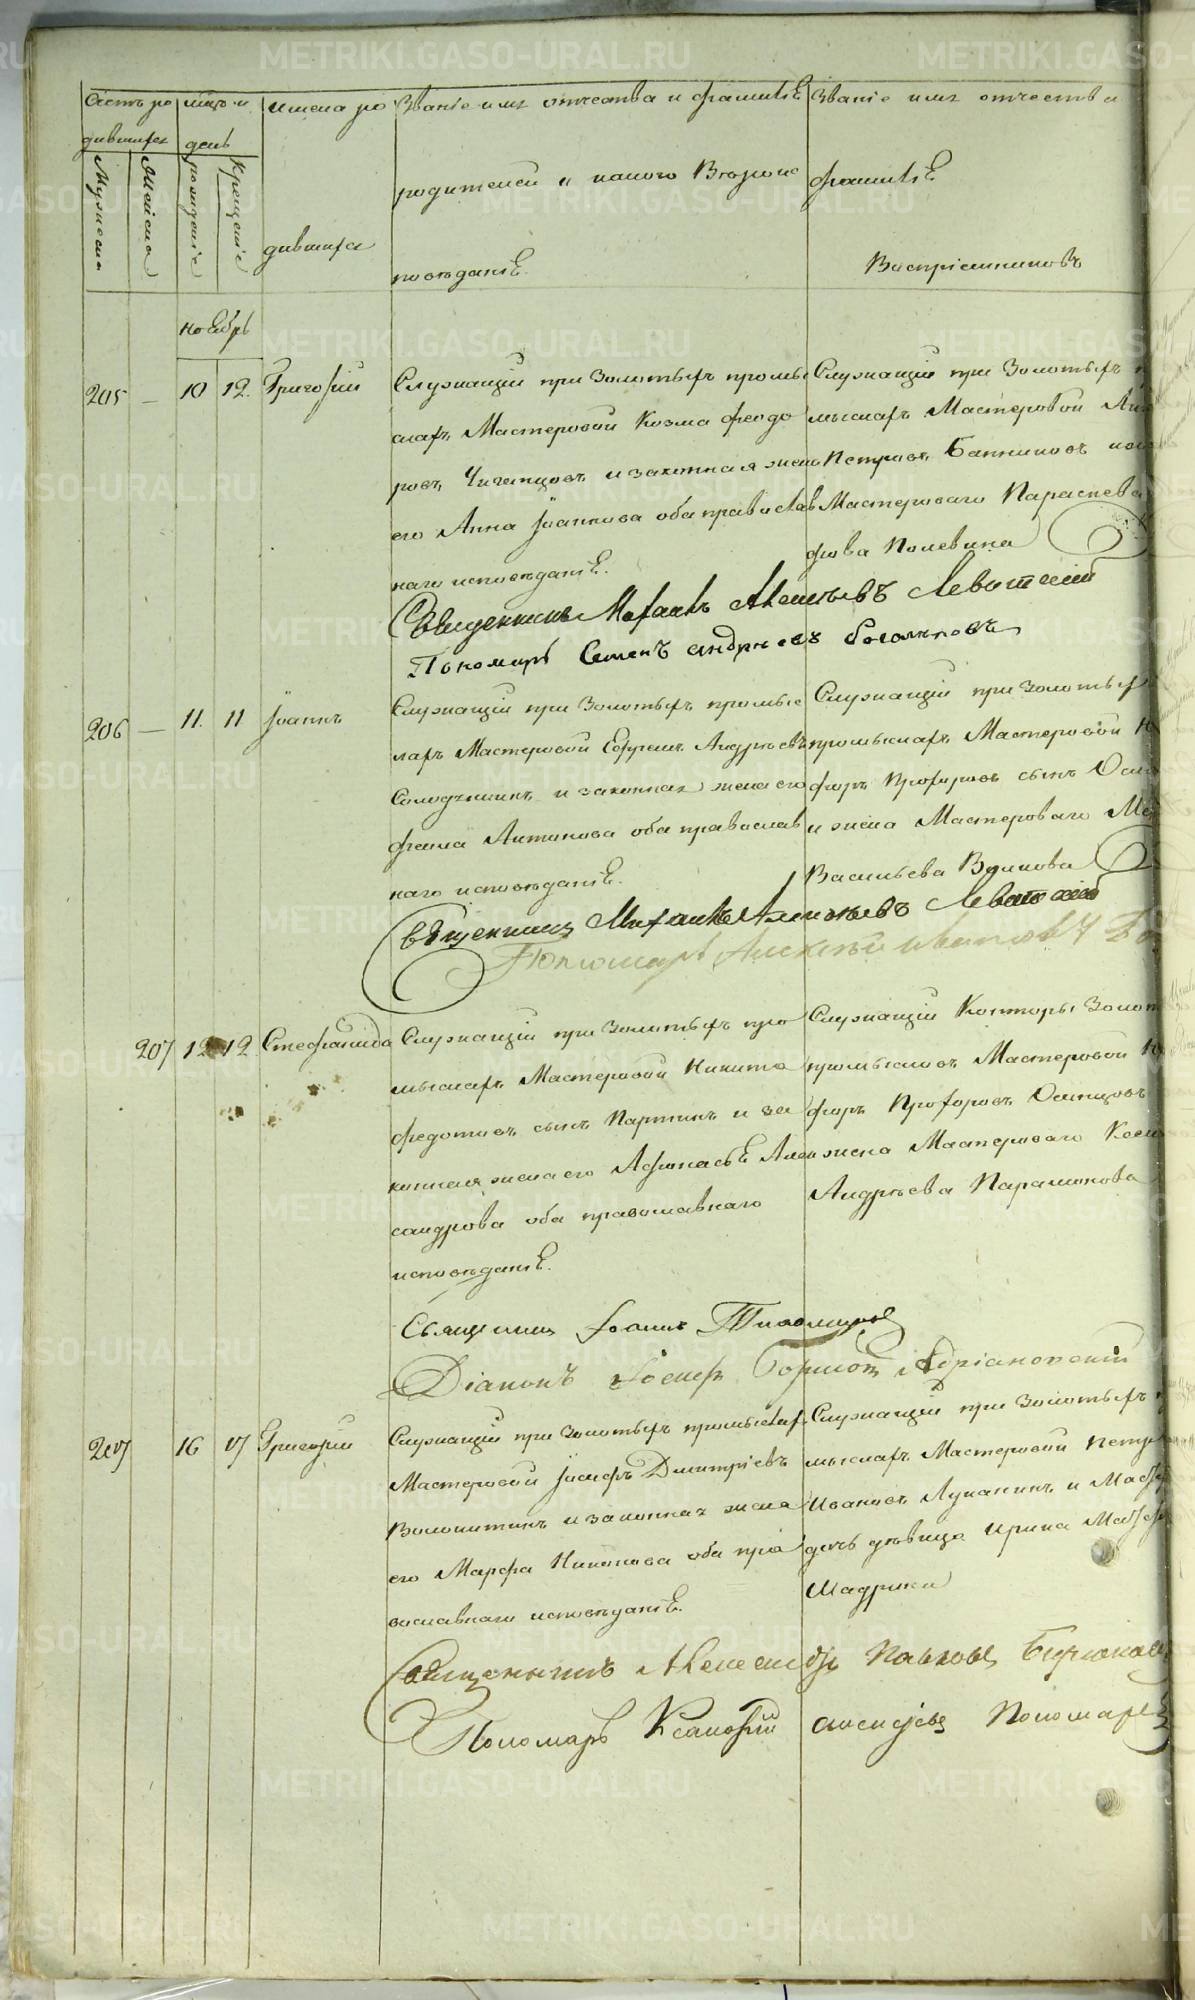 METRIKI.GASO-URAL.RU
Счетъ ро
дившихся
Мужеска
Женска
мѣцъ и
день
рожденіе
крещеніе
имена ро
дившихся
Званіе имя отчества и фамиліѣ
родителей и какого Вѣроис
повѣданіѣ.
Званіе имя отчества и
фамиліѣ
Воспріемниковъ
ноябрь
205 — 10 12. Григорій
Служащій при Золотыхъ промы
слахъ Мастеровой Козма феодо
ровъ и законная жена
его Анна Іоаннова оба православ
наго исповѣданіѣ.
Служащій при Золотыхъ
мыслахъ Мастеровой
Петровъ Банниковъ
Мастероваго Параскева
фова Полевина
Священникъ Михаилъ Алексѣевъ Левитскій
Пономарь Семенъ Андрѣевъ Богомоловъ
206 — 11. 11 Іоаннъ
Служащій при Золотыхъ промыс
лахъ Мастеровой Ефремъ Андрѣевъ
Солодчикинъ и законная жена его
Антипова оба православ
наго исповѣданіѣ.
Служащій при Золотыхъ
промыслахъ Мастеровой
форъ Прохоровъ сынъ
и жена Мастероваго
Васильева Волкова
Священникъ Михаилъ Алексѣевъ Левитскій
Пономарь Алексѣй Ивановъ
207 12 12. Стефанида
Служащій при Золотыхъ про
мыслахъ Мастеровой Никита
федотовъ сынъ Паршинъ и за
конная жена его Афонасьѣ Алек
сандрова оба православнаго
исповѣданіѣ.
Служащій Конторы Золот
промысловъ Мастеровой
форъ Прохоровъ Осинцовъ
жена Мастероваго
Андрѣева Парамонова
Священникъ Іоаннъ Тихомировъ
Діаконъ Іосифъ Адріановскій
207 16 17 Григорій
Служащій при Золотыхъ промыслах
Мастеровой Іосифъ Дмитріевъ
Волокитинъ и законная жена
его Марфа Никонова оба пра
вославнаго исповѣданіѣ.
Служащій при Золотыхъ
мыслахъ Мастеровой Петр
Ивановъ Лупанинъ и
дочь дѣвица Ирина
Шадрина
Священникъ Александръ Павловъ
Пономарь Ксенофонтъ Алексѣевъ Пономаревъ